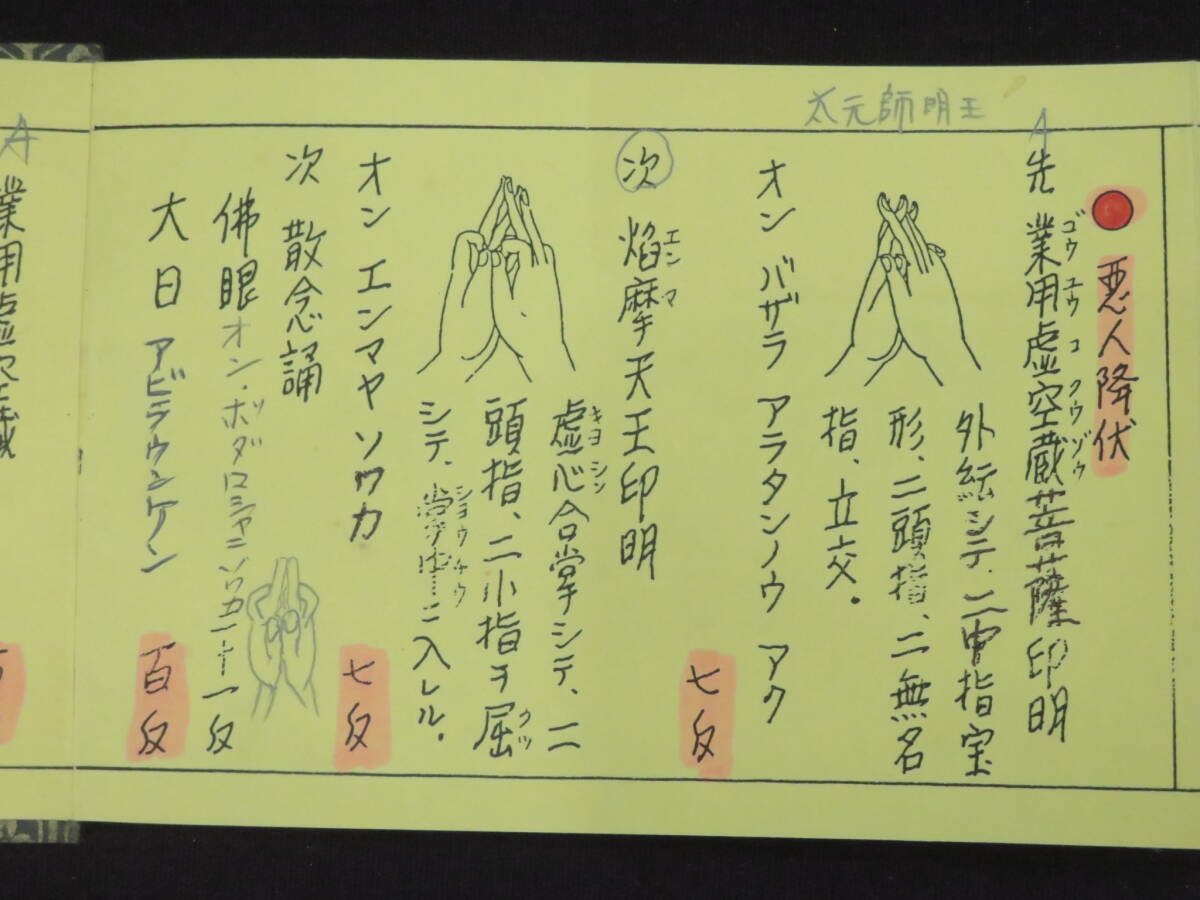 太元師明王
悪人降伏
先 業用虚空蔵菩薩印明
ゴウユウコクウゾウ
外縛シテ、二中指宝
形、二頭指、二無名
指、立交。
オン バザラ アラタンノウ アク
七反
次 焔摩天王印明
エンマ
虚心合掌シテ、二
キヨシン
頭指、二小指ヲ屈
クツ
シテ、掌中ニ入レル。
ショウチウ
オン エンマヤ ソワカ
七反
次 散念誦
佛眼 オン・ボツダロシャニソワカ 二十一反
大日 アビラウンケン
百反
業用虚空蔵